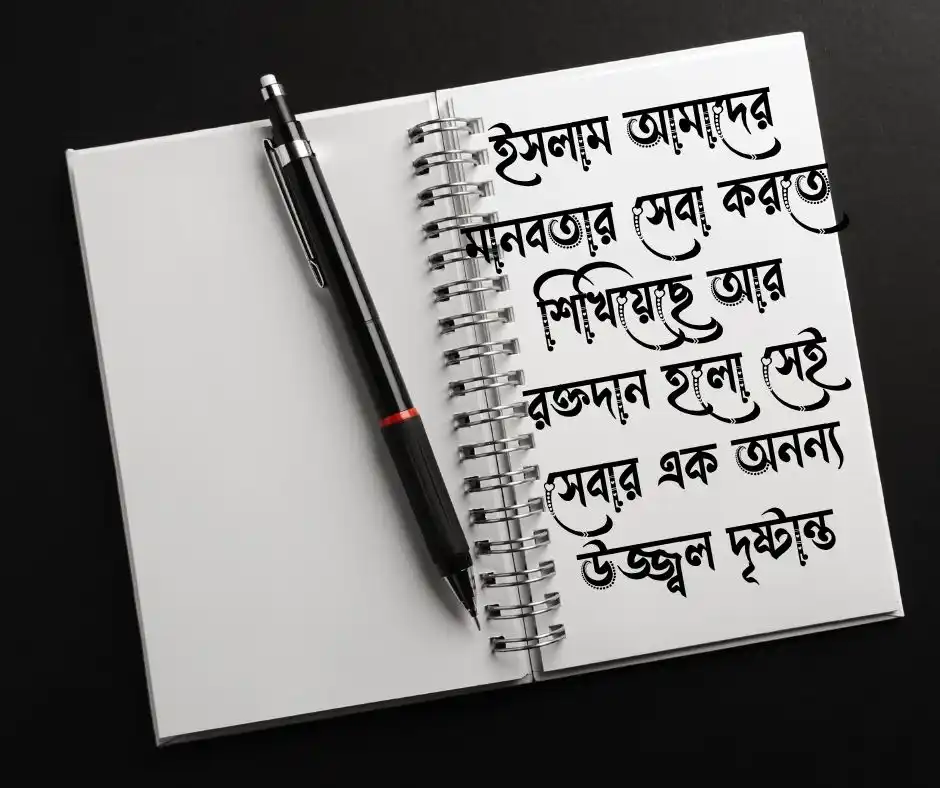 ইসলাম আমাদের
মানবতার সেবা করতে
শিখিয়েছে আর
রক্তদান হলো সেই
সেবার এক অনন্য
উজ্জ্বল দৃষ্টান্ত